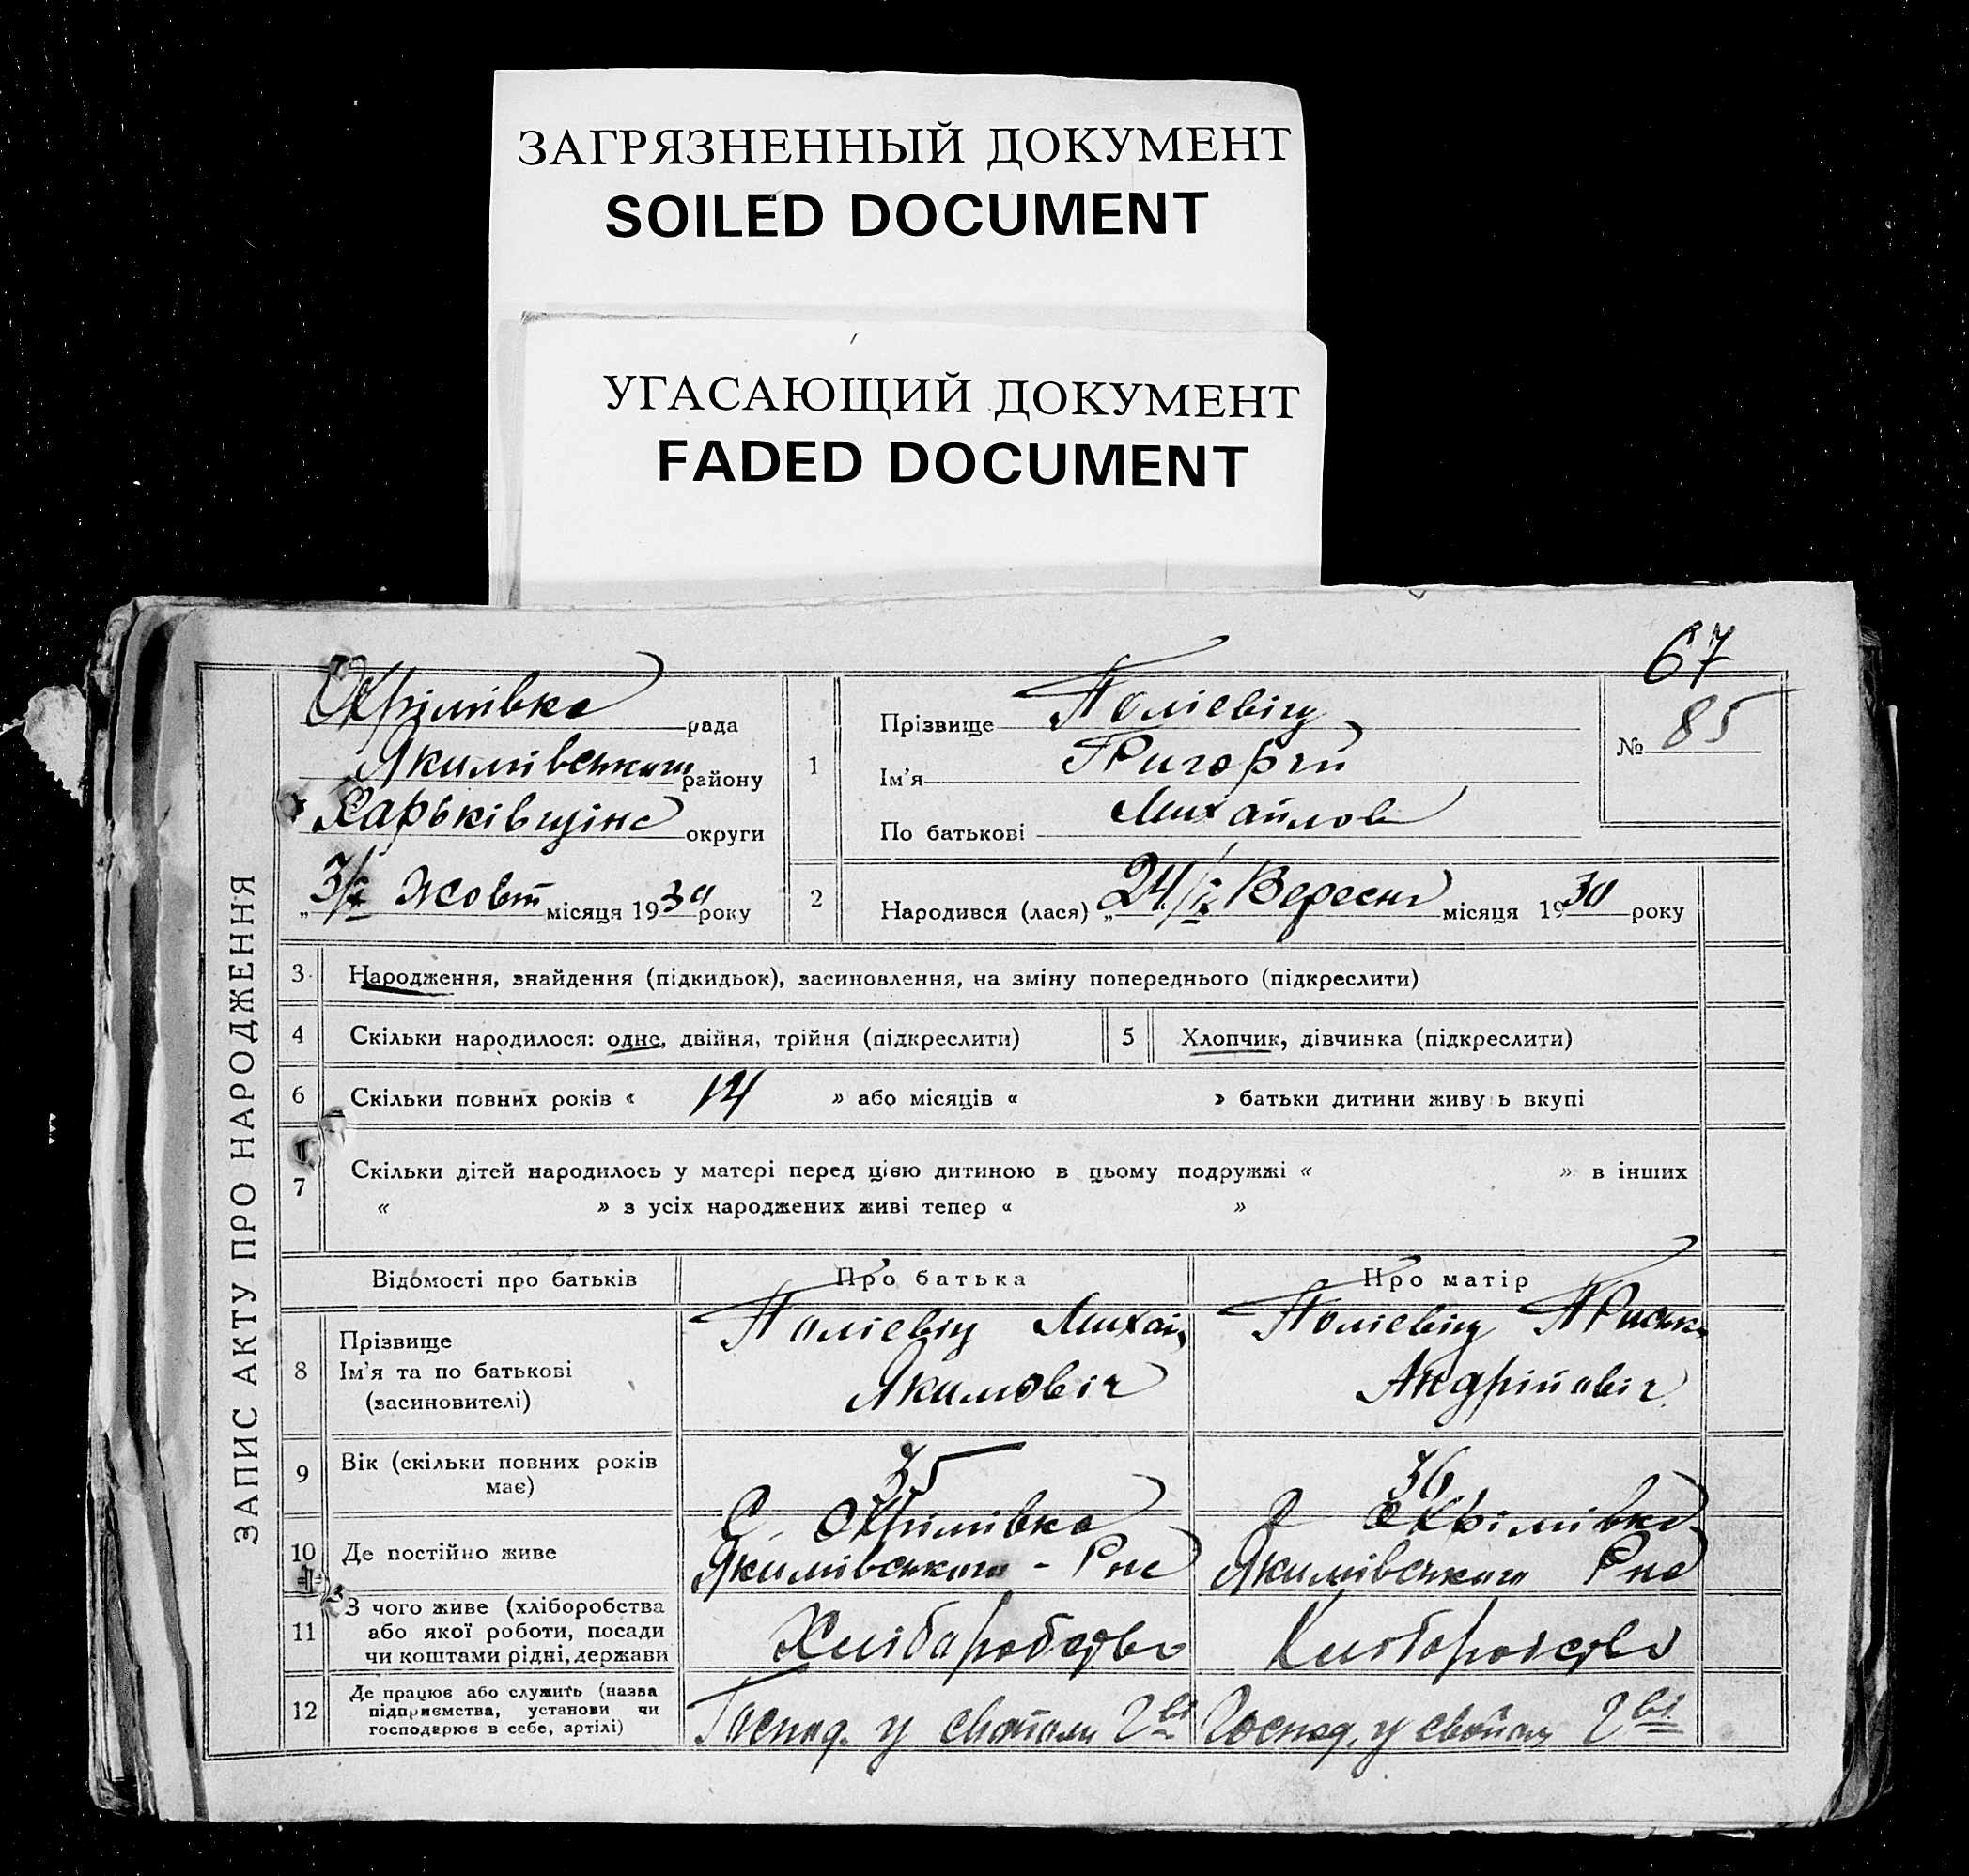 ЗАГРЯЗНЕННЫЙ ДОКУМЕНТ
SOILED DOCUMENT
УГАСАЮЩИЙ ДОКУМЕНТ
FADED DOCUMENT
67
ЗАПИС АКТУ ПРО НАРОДЖЕННЯ
Охрімівка рада
Якимівського району
Харьківщіна округи
„3/X Жовт місяця 1930 року
1
Прізвище Полієвіц
Ім'я Григорій
По батькові Михайлов
№ 85
2 Народився (лася) „24/IX Вересня місяця 1930 року
3 Народження, знайдення (підкидьок), засиновлення, на зміну попереднього (підкреслити)
4 Скільки народилося: одне, двійня, трійня (підкреслити) 5 Хлопчик, дівчинка (підкреслити)
6 Скільки повних років « 14 » або місяців « » батьки дитини живу ь вкупі
7 Скільки дітей народилось у матері перед цією дитиною в цьому подружжі « » в інших
« » з усіх народжених живі тепер « »
Відомості про батьків Про батька Про матір
8 Прізвище
Ім'я та по батькові
(засиновителі)
Полієвіц Михай
Якимовіч
Полієвіц
Андрійовіч
9 Вік (скільки повних років
має)
35 36
10 Де постійно живе
С. Охрімівка
Якимівського - Рна
С Охрімівка
Якимівського Рна
11 З чого живе (хліборобства
або якої роботи, посади
чи коштами рідні, держави
Хліборобство Хліборобство
12 Де працює або служить (назва
підприємства, установи чи
господарює в себе, артілі)
Господ. у свойом г-ві Господ. у свойом г-ві